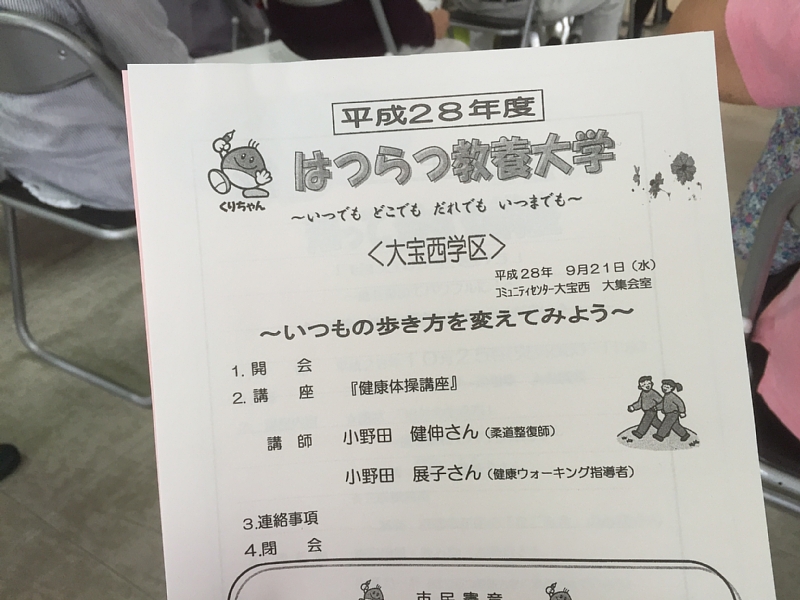 平成28年度
はつらつ教養大学
くりちゃん
~いつでも どこでも だれでも いつまでも~
<大宝西学区>
平成28年 9月21日(水)
コミュニティセンター大宝西 大集会室
~いつもの歩き方を変えてみよう~
1. 開 会
2. 講 座 『健康体操講座』
講 師 小野田 健伸さん(柔道整復師)
小野田 展子さん(健康ウォーキング指導者)
3.連絡事項
4.閉 会
市 民 憲 章